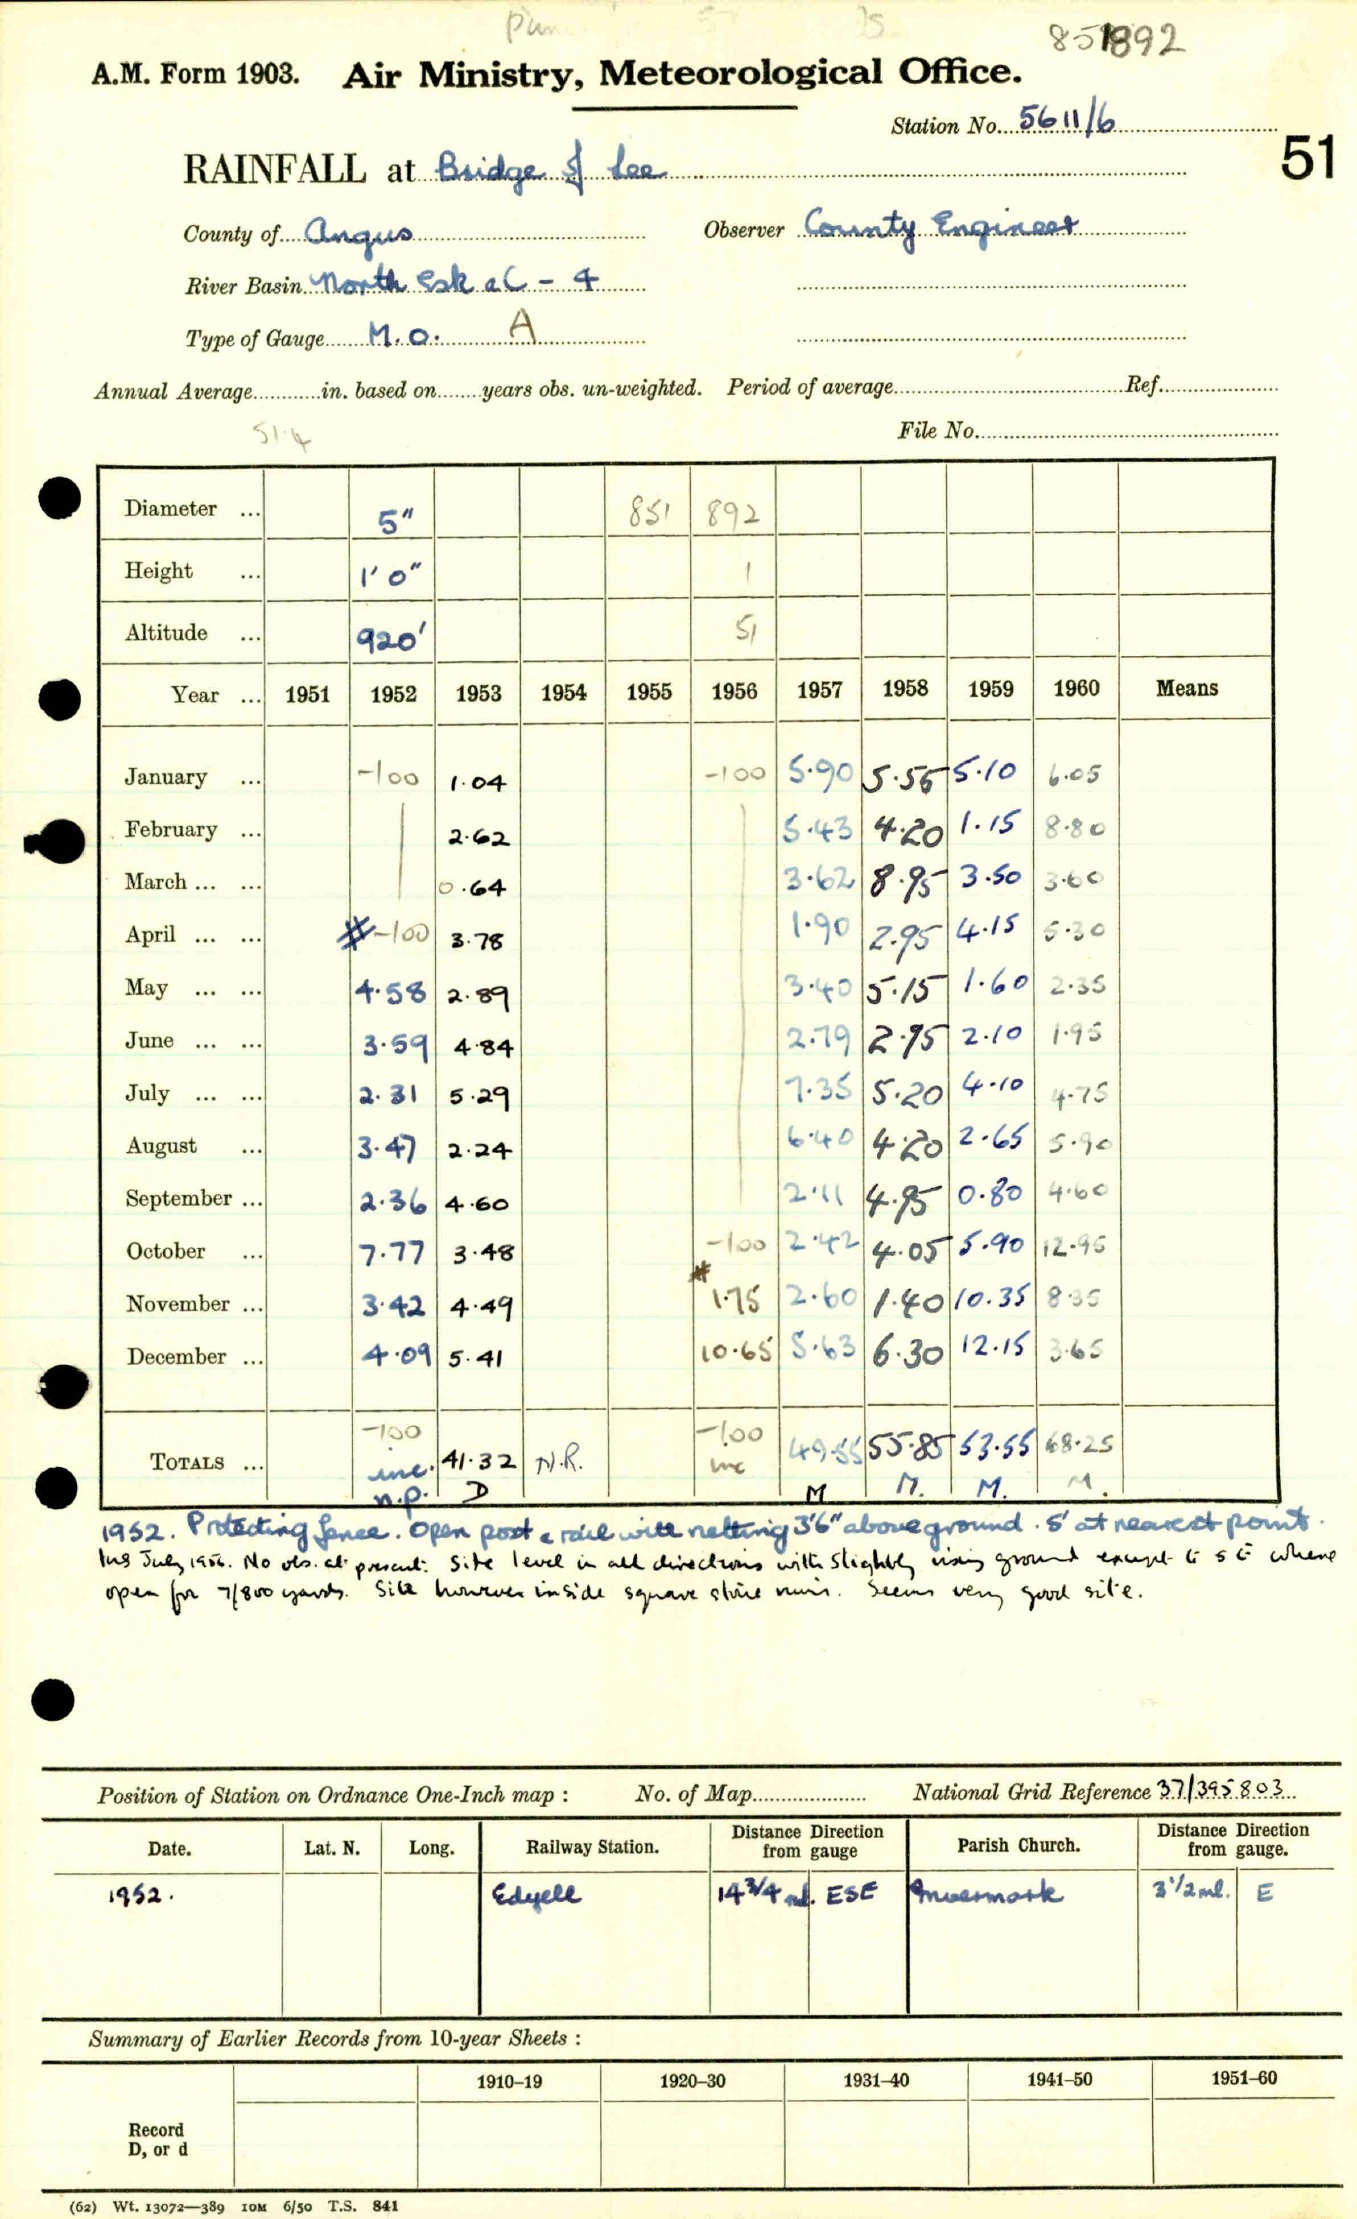 851892
A.M. Form 1903. Air Ministry, Meteorological Office.
Station No. 5611/6
51
RAINFALL at Bridge of Lee
County of Angus Observer County Engineer
River Basin North Esk &C - 4
Type of Gauge M.O. A
Annual Average in. based on years obs. un-weighted. Period of average Ref.
51.4
File No.
Diameter ... 5" 851 892
Height ... 1' 0" 1
Altitude ... 920' 51
Year ... 1951 1952 1953 1954 1955 1956 1957 1958 1959 1960 Means
January ... -100 1.04 -100 5.90 5.55 5.10 6.05
February ... 2.62 5.43 4.20 1.15 8.80
March ... ... 0.64 3.62 8.95 3.50 3.60
April ... ... # -100 3.78 1.90 2.95 4.15 5.30
May ... ... 4.58 2.89 3.40 5.15 1.60 2.35
June ... ... 3.59 4.84 2.79 2.95 2.10 1.95
July ... ... 2.31 5.29 7.35 5.20 4.10 4.75
August ... 3.47 2.24 6.40 4.20 2.65 5.90
September ... 2.36 4.60 2.11 4.95 0.80 4.60
October ... 7.77 3.48 -100 2.42 4.05 5.90 12.95
November ... 3.42 4.49 # 1.75 2.60 1.40 10.35 8.35
December ... 4.09 5.41 10.65 5.63 6.30 12.15 3.65
-100 -100
TOTALS ... inc. 41.32 N.R. inc 49.55 55.85 53.55 68.25
n.p. D M M. M. M.
1952. Protecting fence. Open post & rail with netting 3'6" above ground. 5' at nearest point.
Ins July 1956. No obs. at present. Site level in all directions with slightly rising ground except to SE where
open for 7/800 yards. Site however inside square stone ruin. Seems very good site.
Position of Station on Ordnance One-Inch map : No. of Map National Grid Reference 37/395803
Date. Lat. N. Long. Railway Station. Distance Direction from gauge Parish Church. Distance Direction from gauge.
1952. Edzell 14 3/4 ml. ESE Invermark 3 1/2 ml. E
Summary of Earlier Records from 10-year Sheets :
1910–19 1920–30 1931–40 1941–50 1951–60
Record
D, or d
(62) Wt. 13072—389 10M 6/50 T.S. 841